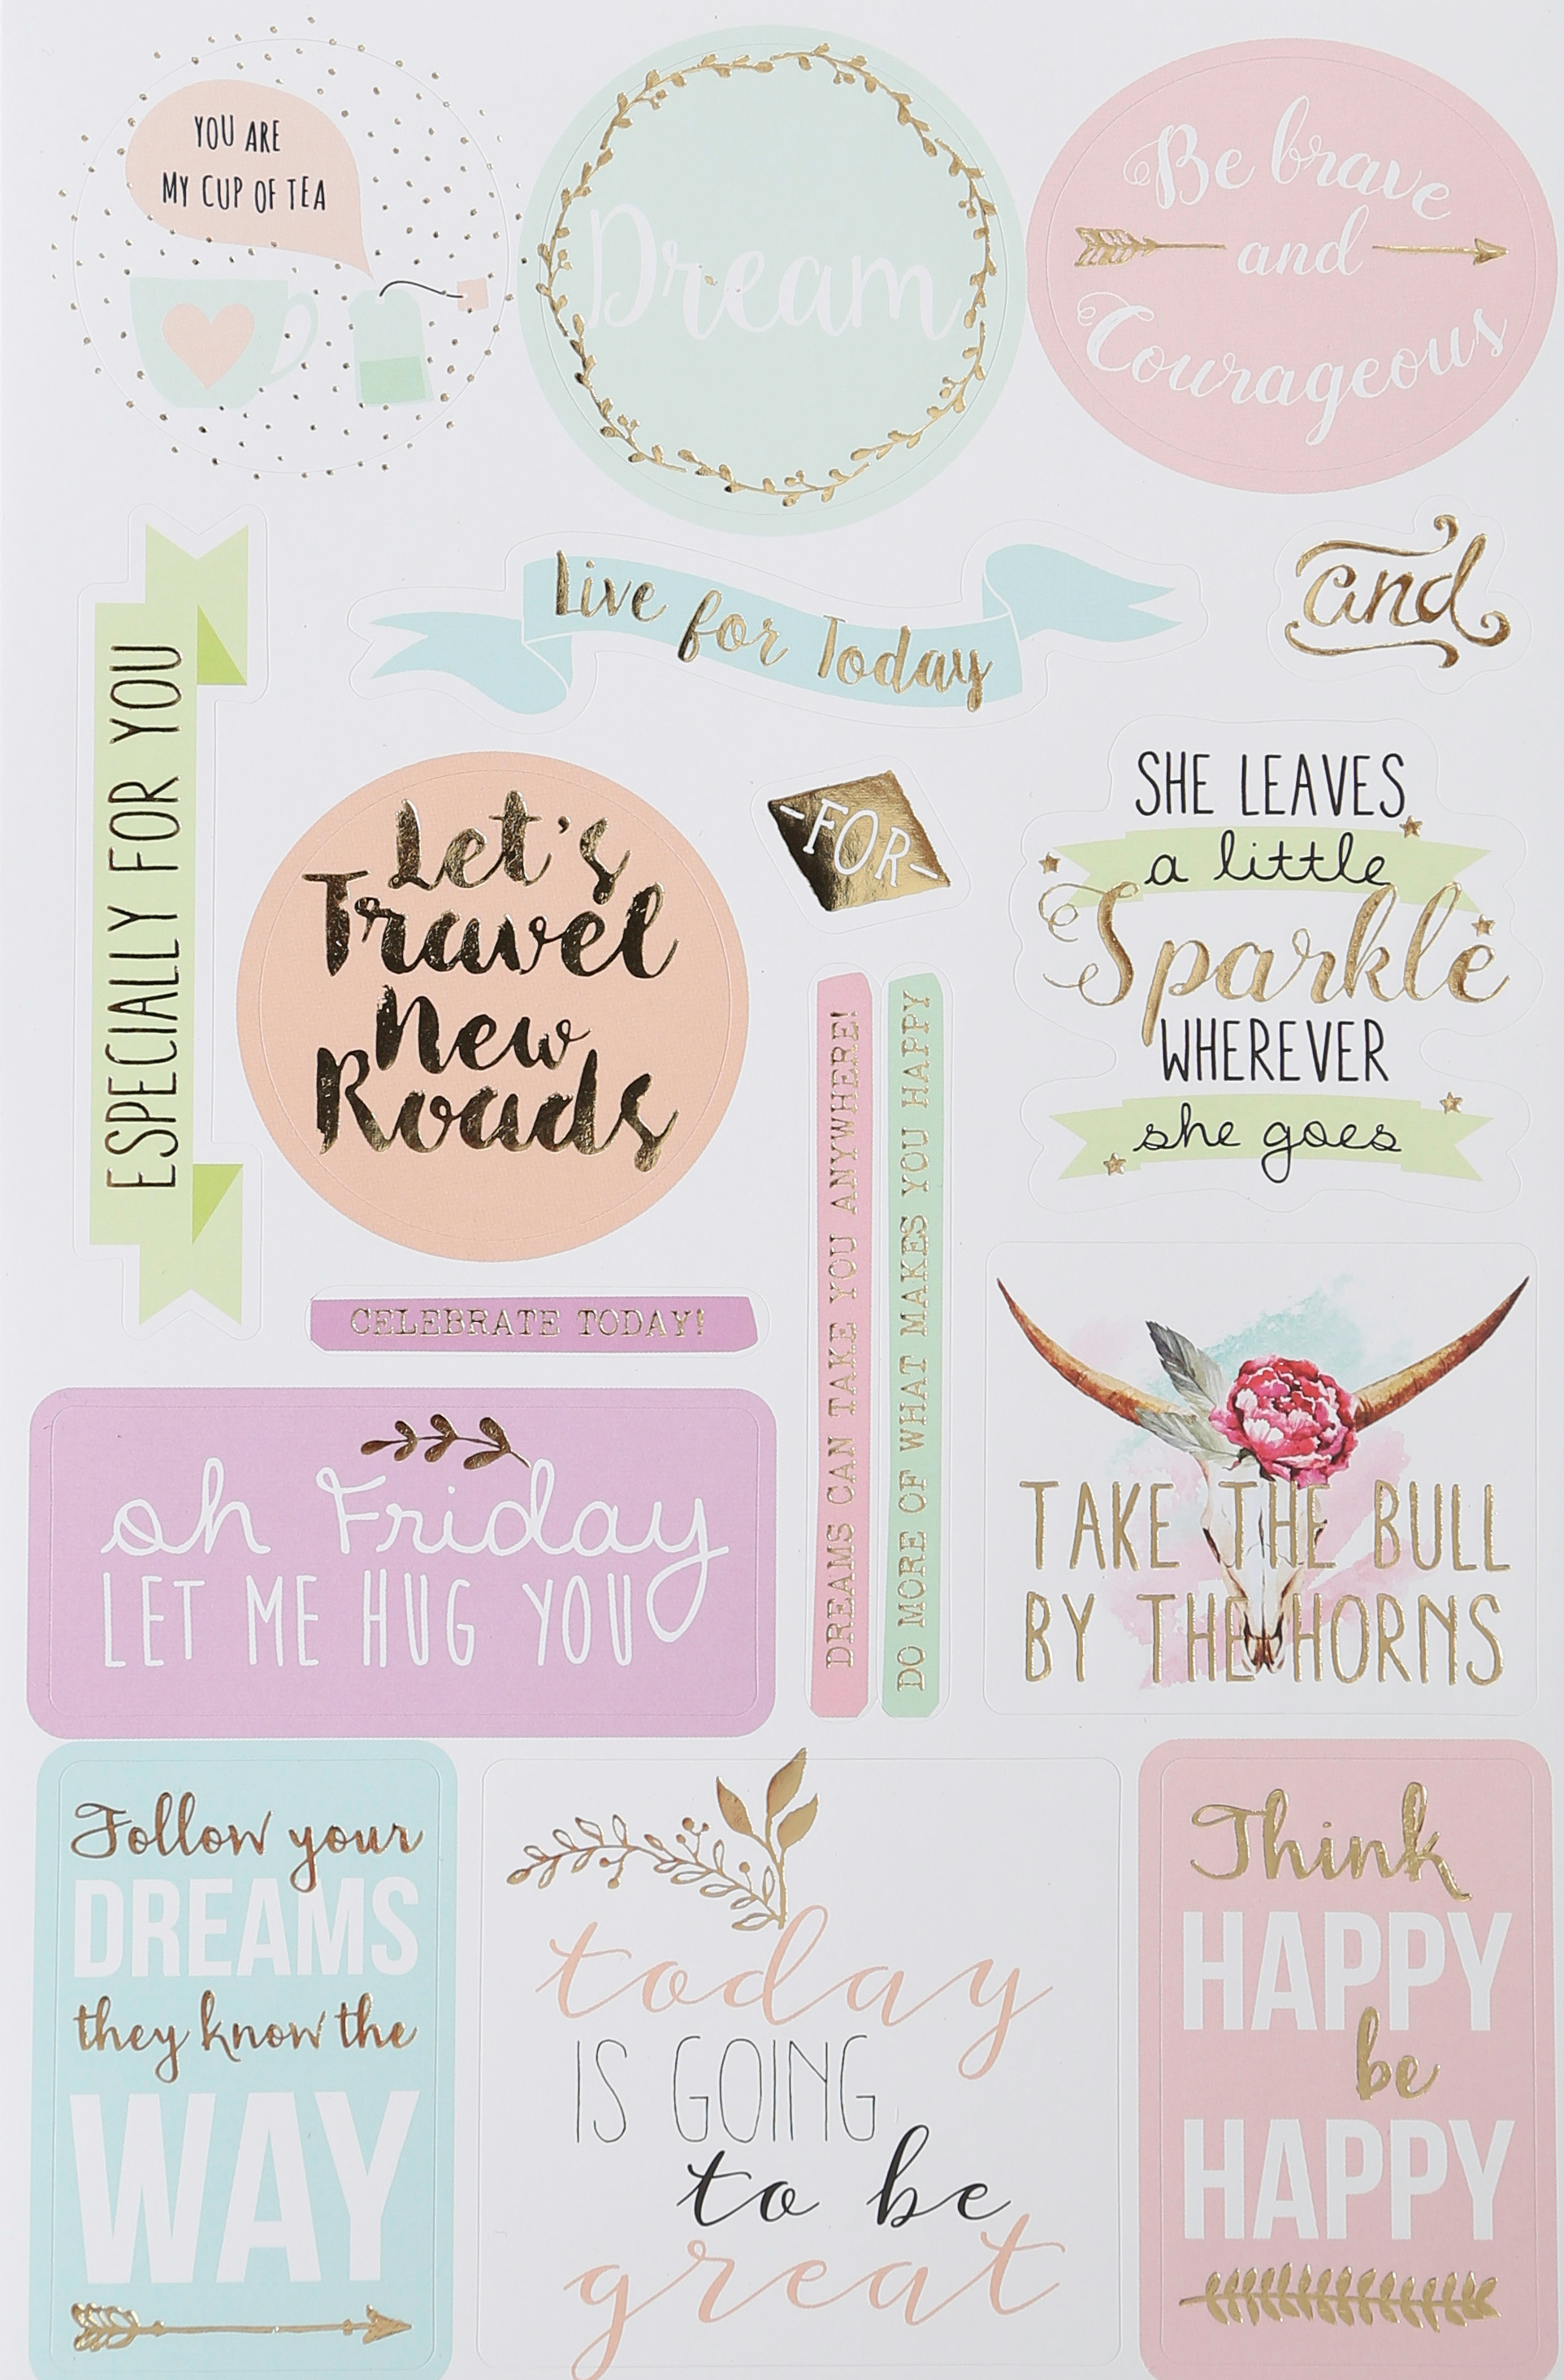 YOU ARE
MY CUP OF TEA
Dream
Be brave
and
Courageous
ESPECIALLY FOR YOU
Live for Today
and
Let's
Travel
New
Roads
-FOR-
SHE LEAVES
a little
Sparkle
WHEREVER
she goes
DREAMS CAN TAKE YOU ANYWHERE!
DO MORE OF WHAT MAKES YOU HAPPY
CELEBRATE TODAY!
oh Friday
LET ME HUG YOU
TAKE THE BULL
BY THE HORNS
Follow your
DREAMS
they know the
WAY
today
IS GOING
to be
great
Think
HAPPY
be
HAPPY